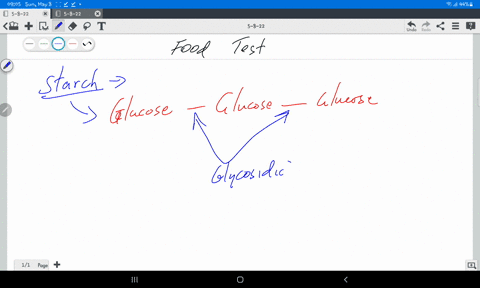 Sun, May 8
54%
5-8-22
5-8-22
5-8-22
Undo
Redo
Food Test
Starch →
Glucose — Glucose — Glucose
Glycosidic
1/1 Page +